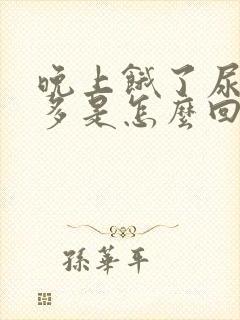 晚上餓了尿
多是怎麼回
孫華平